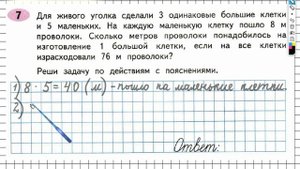 7
Для живого уголка сделали 3 одинаковые большие клетки
и 5 маленьких. На каждую маленькую клетку пошло 8 м
проволоки. Сколько метров проволоки понадобилось на
изготовление 1 большой клетки, если на все клетки
израсходовали 76 м проволоки?
Реши задачу по действиям с пояснениями.
1) 8 · 5 = 40 (м) - пошло на маленькие клетки.
2)
Ответ: